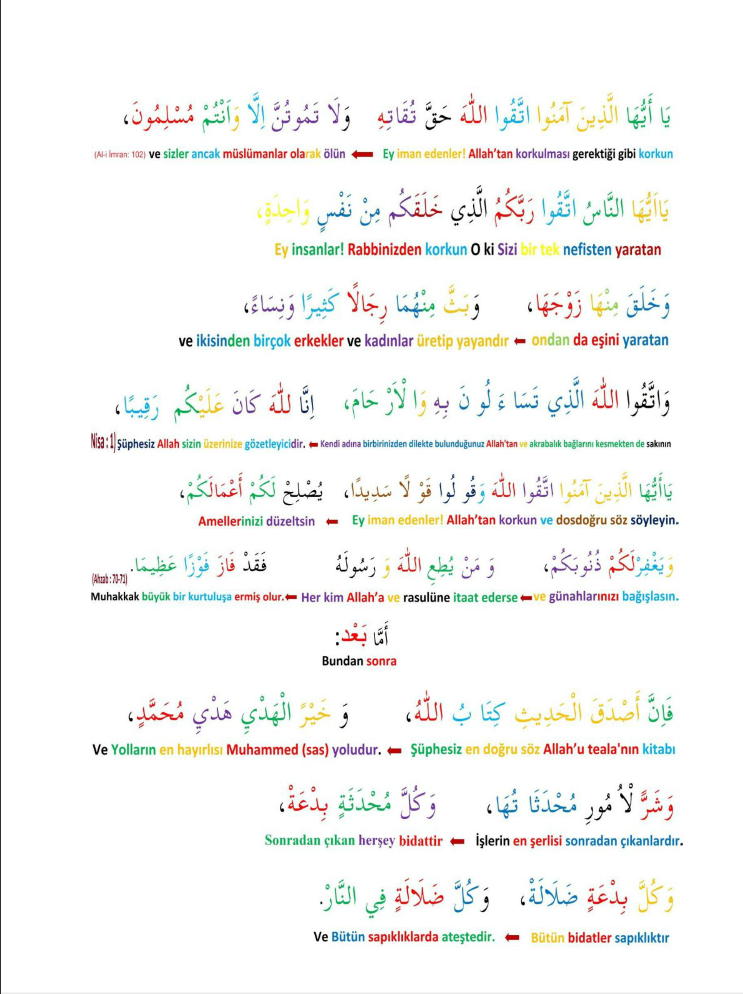 يَا أَيُّهَا الَّذِينَ آمَنُوا اتَّقُوا اللّٰهَ حَقَّ تُقَاتِهِ وَلَا تَمُوتُنَّ اِلَّا وَاَنْتُمْ مُسْلِمُونَ،
Ey iman edenler! Allah'tan korkulması gerektiği gibi korkun ⬅ ve sizler ancak müslümanlar olarak ölün (Al-i İmran: 102)
يَااَيُّهَا النَّاسُ اتَّقُوا رَبَّكُمُ الَّذِي خَلَقَكُم مِنْ نَفْسٍ وَاحِدَةٍ،
Ey insanlar! Rabbinizden korkun O ki Sizi bir tek nefisten yaratan
وَخَلَقَ مِنْهَا زَوْجَهَا، وَبَثَّ مِنْهُمَا رِجَالًا كَثِيرًا وَنِسَاءً،
ondan da eşini yaratan ⬅ ve ikisinden birçok erkekler ve kadınlar üretip yayandır
وَاتَّقُوا اللّٰهَ الَّذِي تَسَا ءَ لُو نَ بِهِ وَا لْاَرْ حَامَ، اِنَّا للّٰهَ كَانَ عَلَيْكُم رَقِيبًا،
Kendi adına birbirinizden dilekte bulunduğunuz Allah'tan ve akrabalık bağlarını kesmekten de sakının ⬅ Şüphesiz Allah sizin üzerinize gözetleyicidir. Nisa : 1
يَاأَيُّهَا الَّذِينَ آمَنُوا اتَّقُوا اللّٰهَ وَقُو لُوا قَوْ لًا سَدِيدًا، يُصْلِحْ لَكُمْ أَعْمَالَكُمْ،
Ey iman edenler! Allah'tan korkun ve dosdoğru söz söyleyin. ⬅ Amellerinizi düzeltsin
وَيَغْفِرْلَكُمْ ذُنُوبَكُمْ، وَ مَنْ يُطِعِ اللّٰهَ وَ رَسُولَهُ فَقَدْ فَازَ فَوْزًا عَظِيمَا.
(Ahzab : 70-71)
ve günahlarınızı bağışlasın. ⬅ Her kim Allah'a ve rasulüne itaat ederse ⬅ Muhakkak büyük bir kurtuluşa ermiş olur.
أَمَّا بَعْد:
Bundan sonra
فَاِنَّ أَصْدَقَ الْحَدِيثِ كِتَا بُ اللّٰهُ، وَ خَيْرَ الْهَدْيِ هَدْيِ مُحَمَّدٍ،
Şüphesiz en doğru söz Allah'u teala'nın kitabı ⬅ Ve Yolların en hayırlısı Muhammed (sas) yoludur.
وَشَرَّ لْاُ مُورِ مُحْدَثَا تُهَا، وَكُلَّ مُحْدَثَةٍ بِدْعَةْ،
İşlerin en şerlisi sonradan çıkanlardır. ⬅ Sonradan çıkan herşey bidattir
وَكُلَّ بِدْعَةٍ ضَلَالَةْ، وَكُلَّ ضَلَالَةٍ فِي النَّارْ.
Bütün bidatler sapıklıktır ⬅ Ve Bütün sapıklıklarda ateştedir.